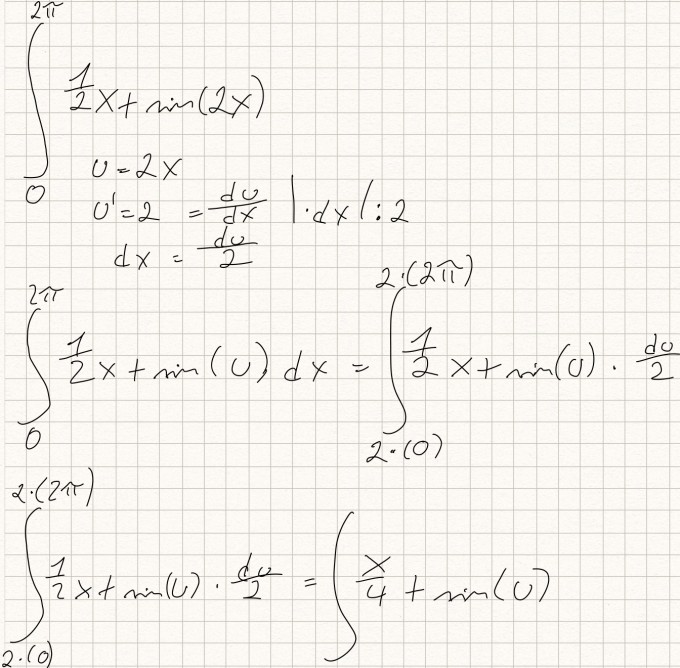 ∫₀^{2π} 1/2 x + sin(2x)
u = 2x
u' = 2 = du/dx |·dx |:2
dx = du/2
∫₀^{2π} 1/2 x + sin(u) dx = ∫_{2·(0)}^{2·(2π)} 1/2 x + sin(u) · du/2
∫_{2·(0)}^{2·(2π)} 1/2 x + sin(u) · du/2 = ∫ x/4 + sin(u)